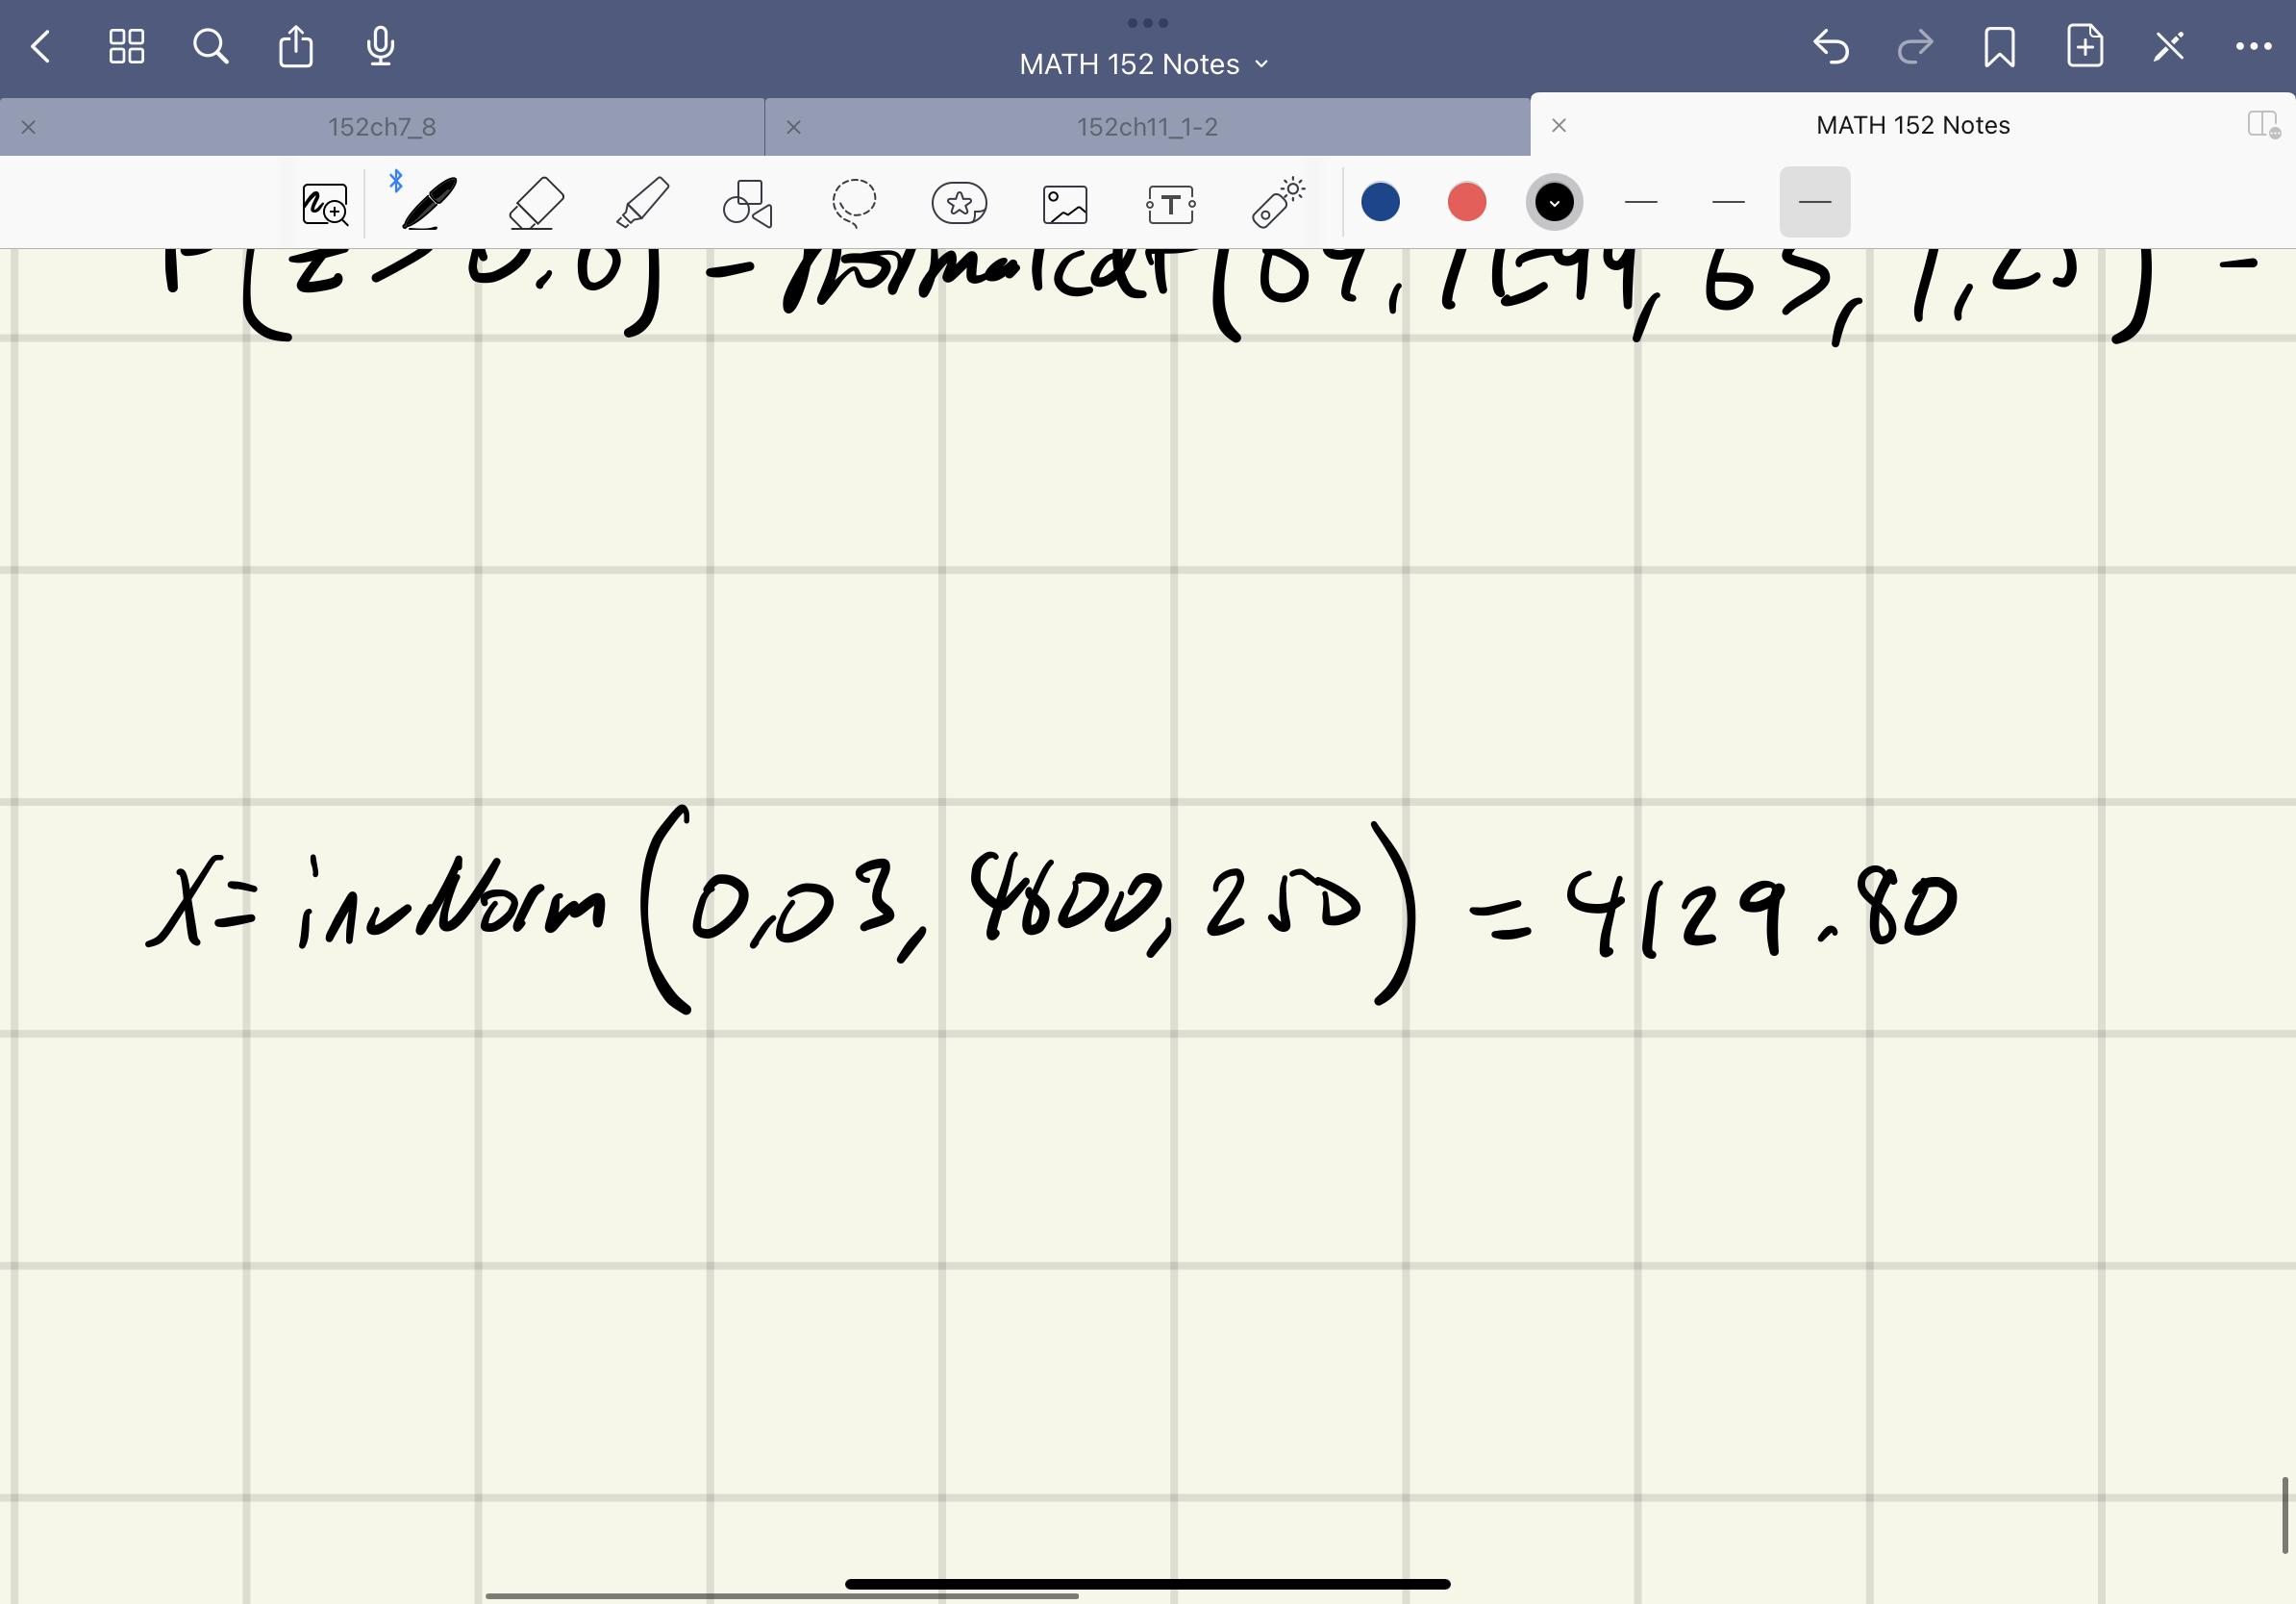 MATH 152 Notes
152ch7_8
152ch11_1-2
MATH 152 Notes
P(z > 0.8) = normalcdf(64, 1E99, 63, 1.25) =
X = invNorm(0.03, 4600, 250) = 4129.80